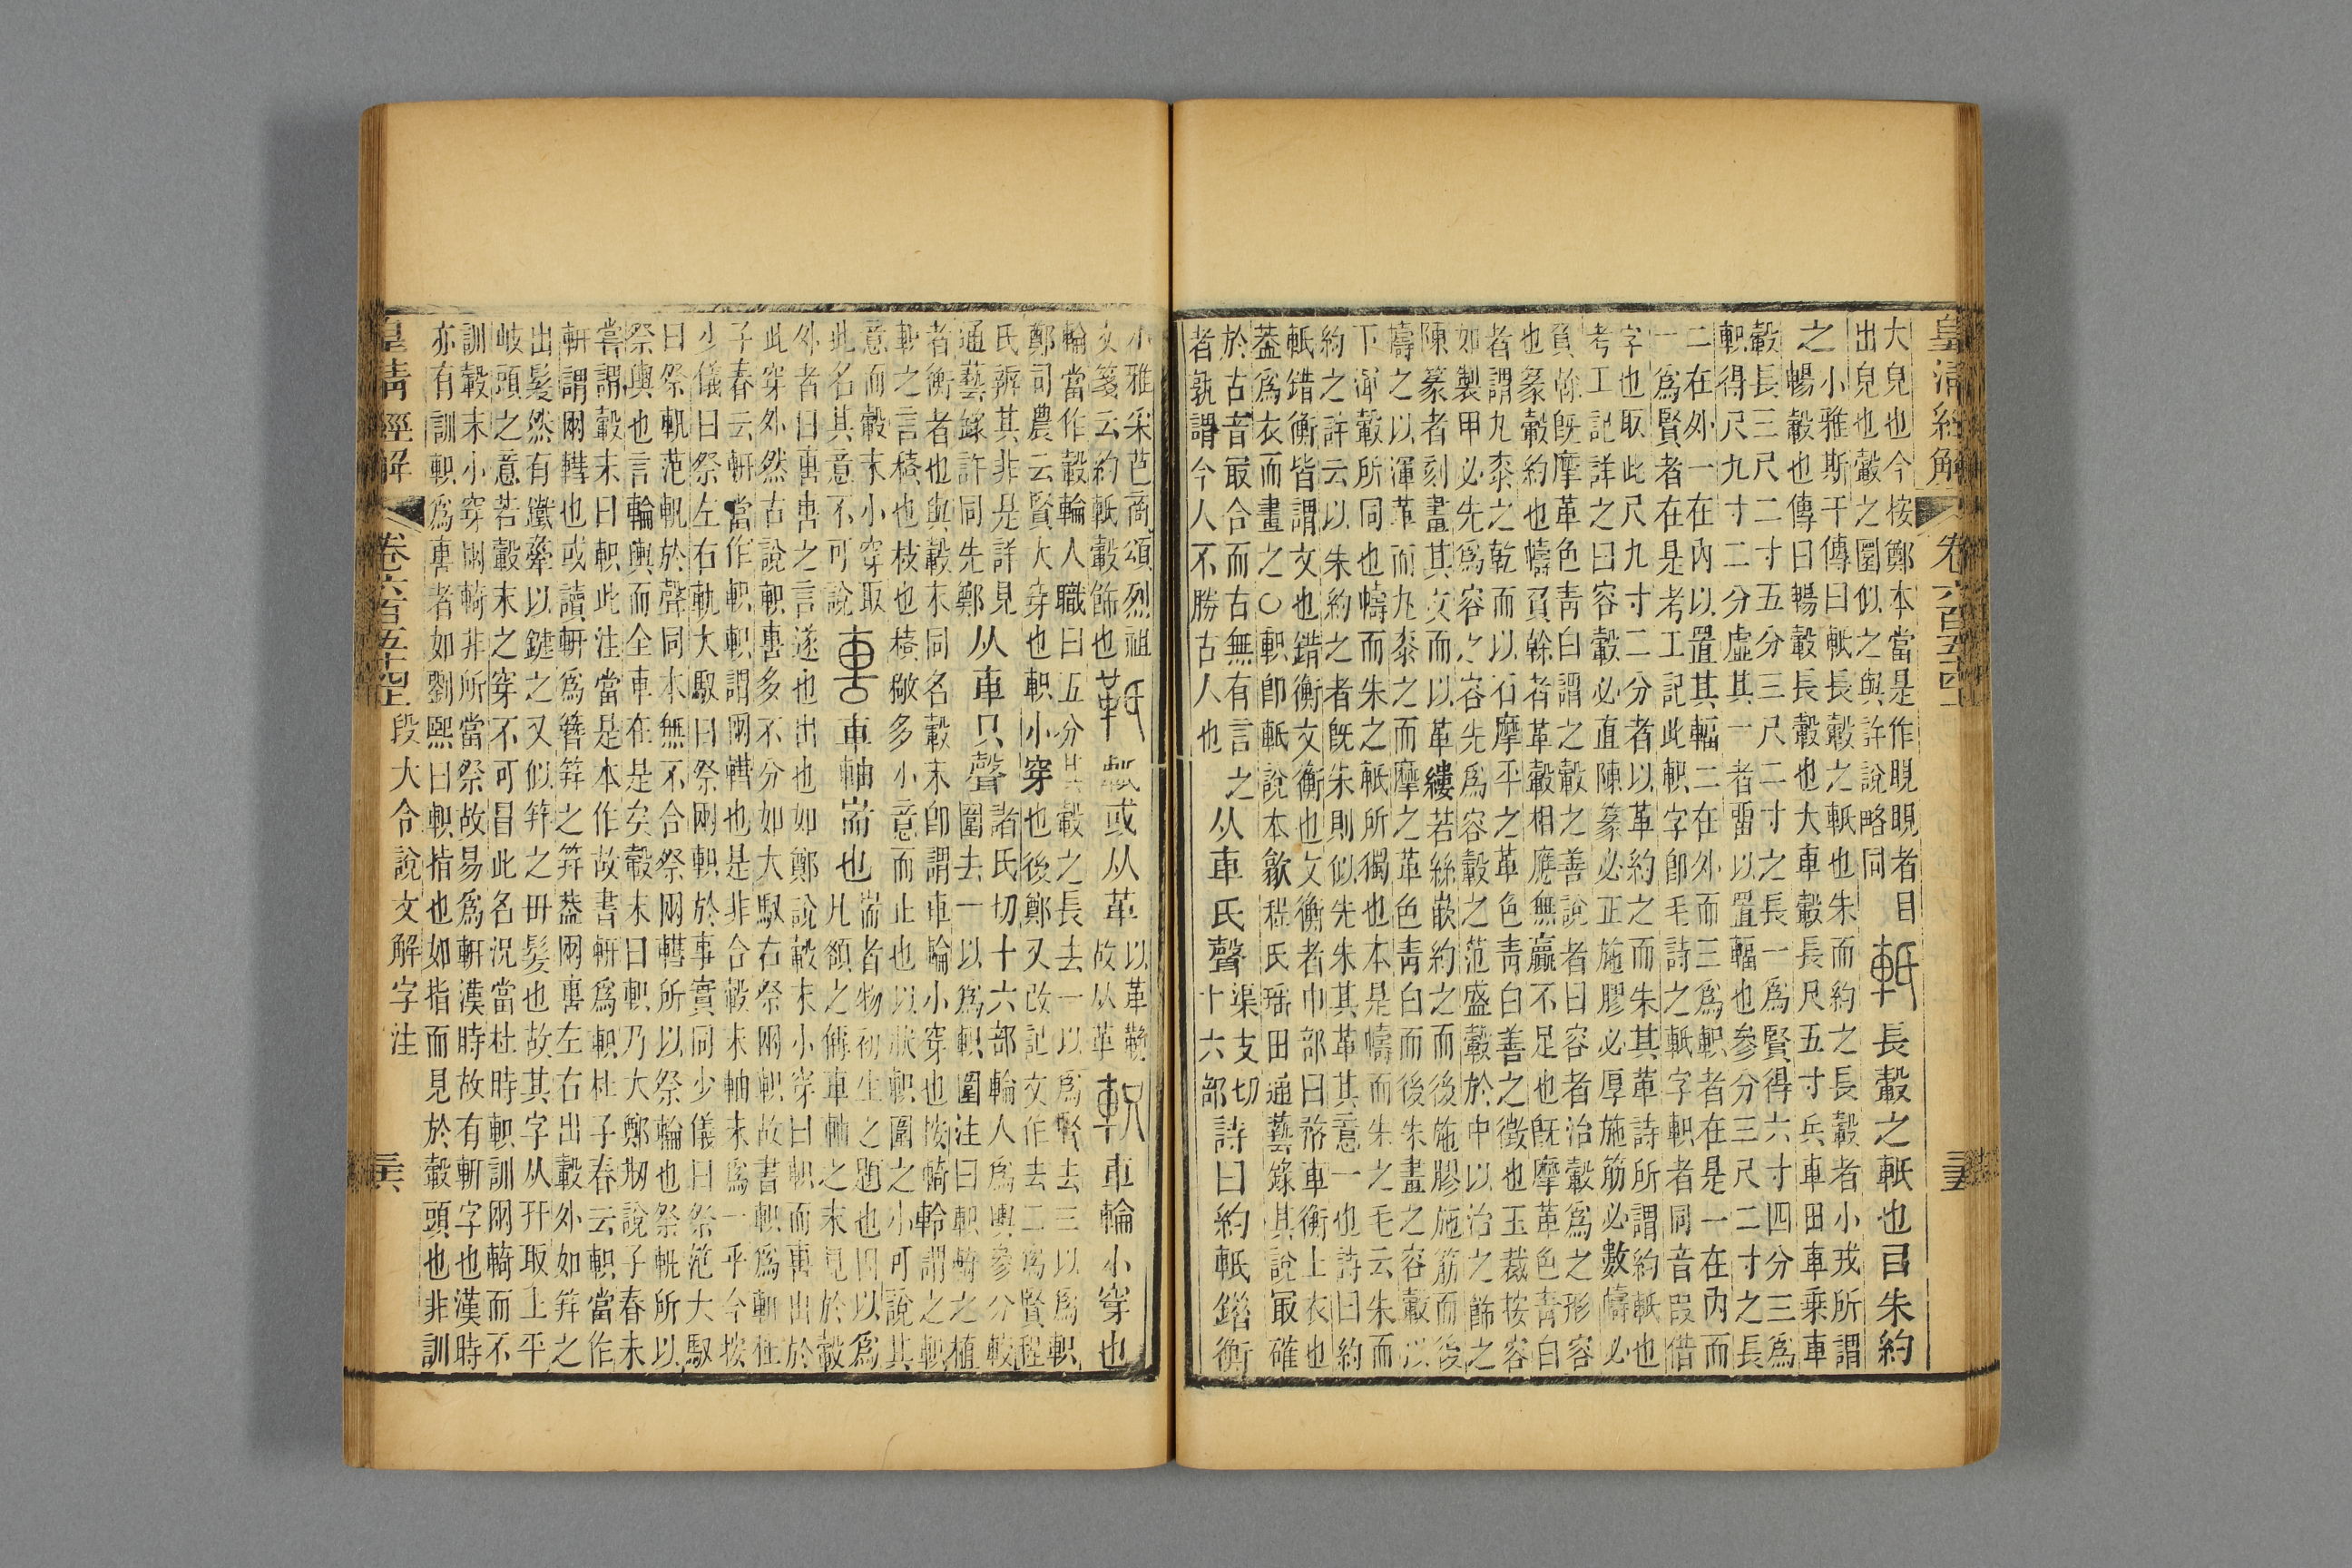 皇清經解 卷六百五十四 三五
大皃也今按鄭本當是作睍睍者目
出皃也轂之圍似之與許說略同
軝長轂之軝也㠯朱約
之
小雅斯干傳曰軝長轂之軝也朱而約之長轂者小戎所謂
暢轂也傳曰暢轂長轂也大車轂長尺五寸兵車田車乘車
轂長三尺二寸五分三尺二寸之長一爲賢得六寸四分三爲
軹得尺九寸二分虛其一者畱以置輻也參分三尺二寸之長
二在外一在內以置其輻二在外而三爲軹者在是一在內而
一爲賢者在是考工記此軹字卽毛詩之軝字軹者同音叚借
字也取此尺九寸二分者以革約之而朱其革詩所謂約軝也
考工記詳之曰容轂必直陳篆必正施膠必厚施筋必數幬必
負榦旣摩革色靑白謂之轂之善說者曰容者治轂爲之形容
也篆轂約也幬負榦者革轂相應無贏不足也旣摩革色靑白
者謂丸桼之乾而以石摩平之革色靑白善之徵也玉裁按容
如製甲必先爲容之容先爲容轂之范盛轂於中以治之飾之
陳篆者刻畫其文而以革縷若絲嵌約之而後施膠施筋而後
幬之以渾革而丸桼之而摩之革色靑白而後朱畫之容轂以
下渾轂所同也幬而朱之軝所獨也本是幬而朱之毛云朱而
約之許云以朱約之者旣朱則似先朱其革其意一也詩曰約
軝錯衡皆謂文也錯衡文衡也文衡者巾部曰㡔車衡上衣也
蓋爲衣而畫之○軹卽軝說本歙程氏瑤田通藝錄其說冣確
於古音冣合而古無有言之
者孰謂今人不勝古人也
从車氏聲
渠支切
十六部
詩曰約軝錯衡
小雅采芑商頌烈祖
文箋云約軝轂飾也
𩊢軝或从革
以革鞔
故从革
軹車輪小穿也
輪當作轂輪人職曰五分其轂之長去一以爲賢去三以爲軹
鄭司農云賢大穿也軹小穿也後鄭又改記文作去二爲賢程
氏辨其非是詳見
通藝錄許同先鄭
从車只聲
諸氏切十六部輪人爲輿參分較
圍去一以爲軹圍注曰軹輢之植
者衡者也與轂末同名轂末卽謂車輪小穿也按輢軨謂之軹
軹之言積也枝也積穊多小意而止也以狀軹圍之小可說其
意而轂末小穿取
此名其意不可說
軎車軸耑也
耑者物初生之題也因以爲
凡頟之偁車軸之末見於轂
外者曰軎軎之言遂也出也如鄭說轂末小穿曰軹而軎出於
此穿外然古說軹軎多不分如大馭右祭兩軹故書軹爲䡓杜
子春云䡓當作軹軹謂兩轊也是非合轂末軸末爲一乎今按
少儀曰祭左右軌大馭曰祭兩軹於事實同少儀曰祭范大馭
曰祭軓范軓於聲同本無不合祭兩轊所以祭輪也祭軓所以
祭輿也言輪輿而全車在是矣轂末曰軹乃大鄭刱說子春未
嘗謂轂末曰軹此注當是本作故書䡓爲軹杜子春云軹當作
䡓謂兩轊也或讀䡓爲簪笄之笄蓋兩軎左右出轂外如笄之
出髮然有鐵牽以鍵之又似笄之毌髮也故其字从幵取上平
岐頭之意若轂末之穿不可冒此名況當杜時軹訓兩輢而不
訓轂末小穿兩輢非所當祭故易爲䡓漢時故有䡓字也漢時
亦有訓軹爲軎者如劉熙曰軹指也如指而見於轂頭也非訓
皇清經解 卷六百五十四 段大令說文解字注 三六